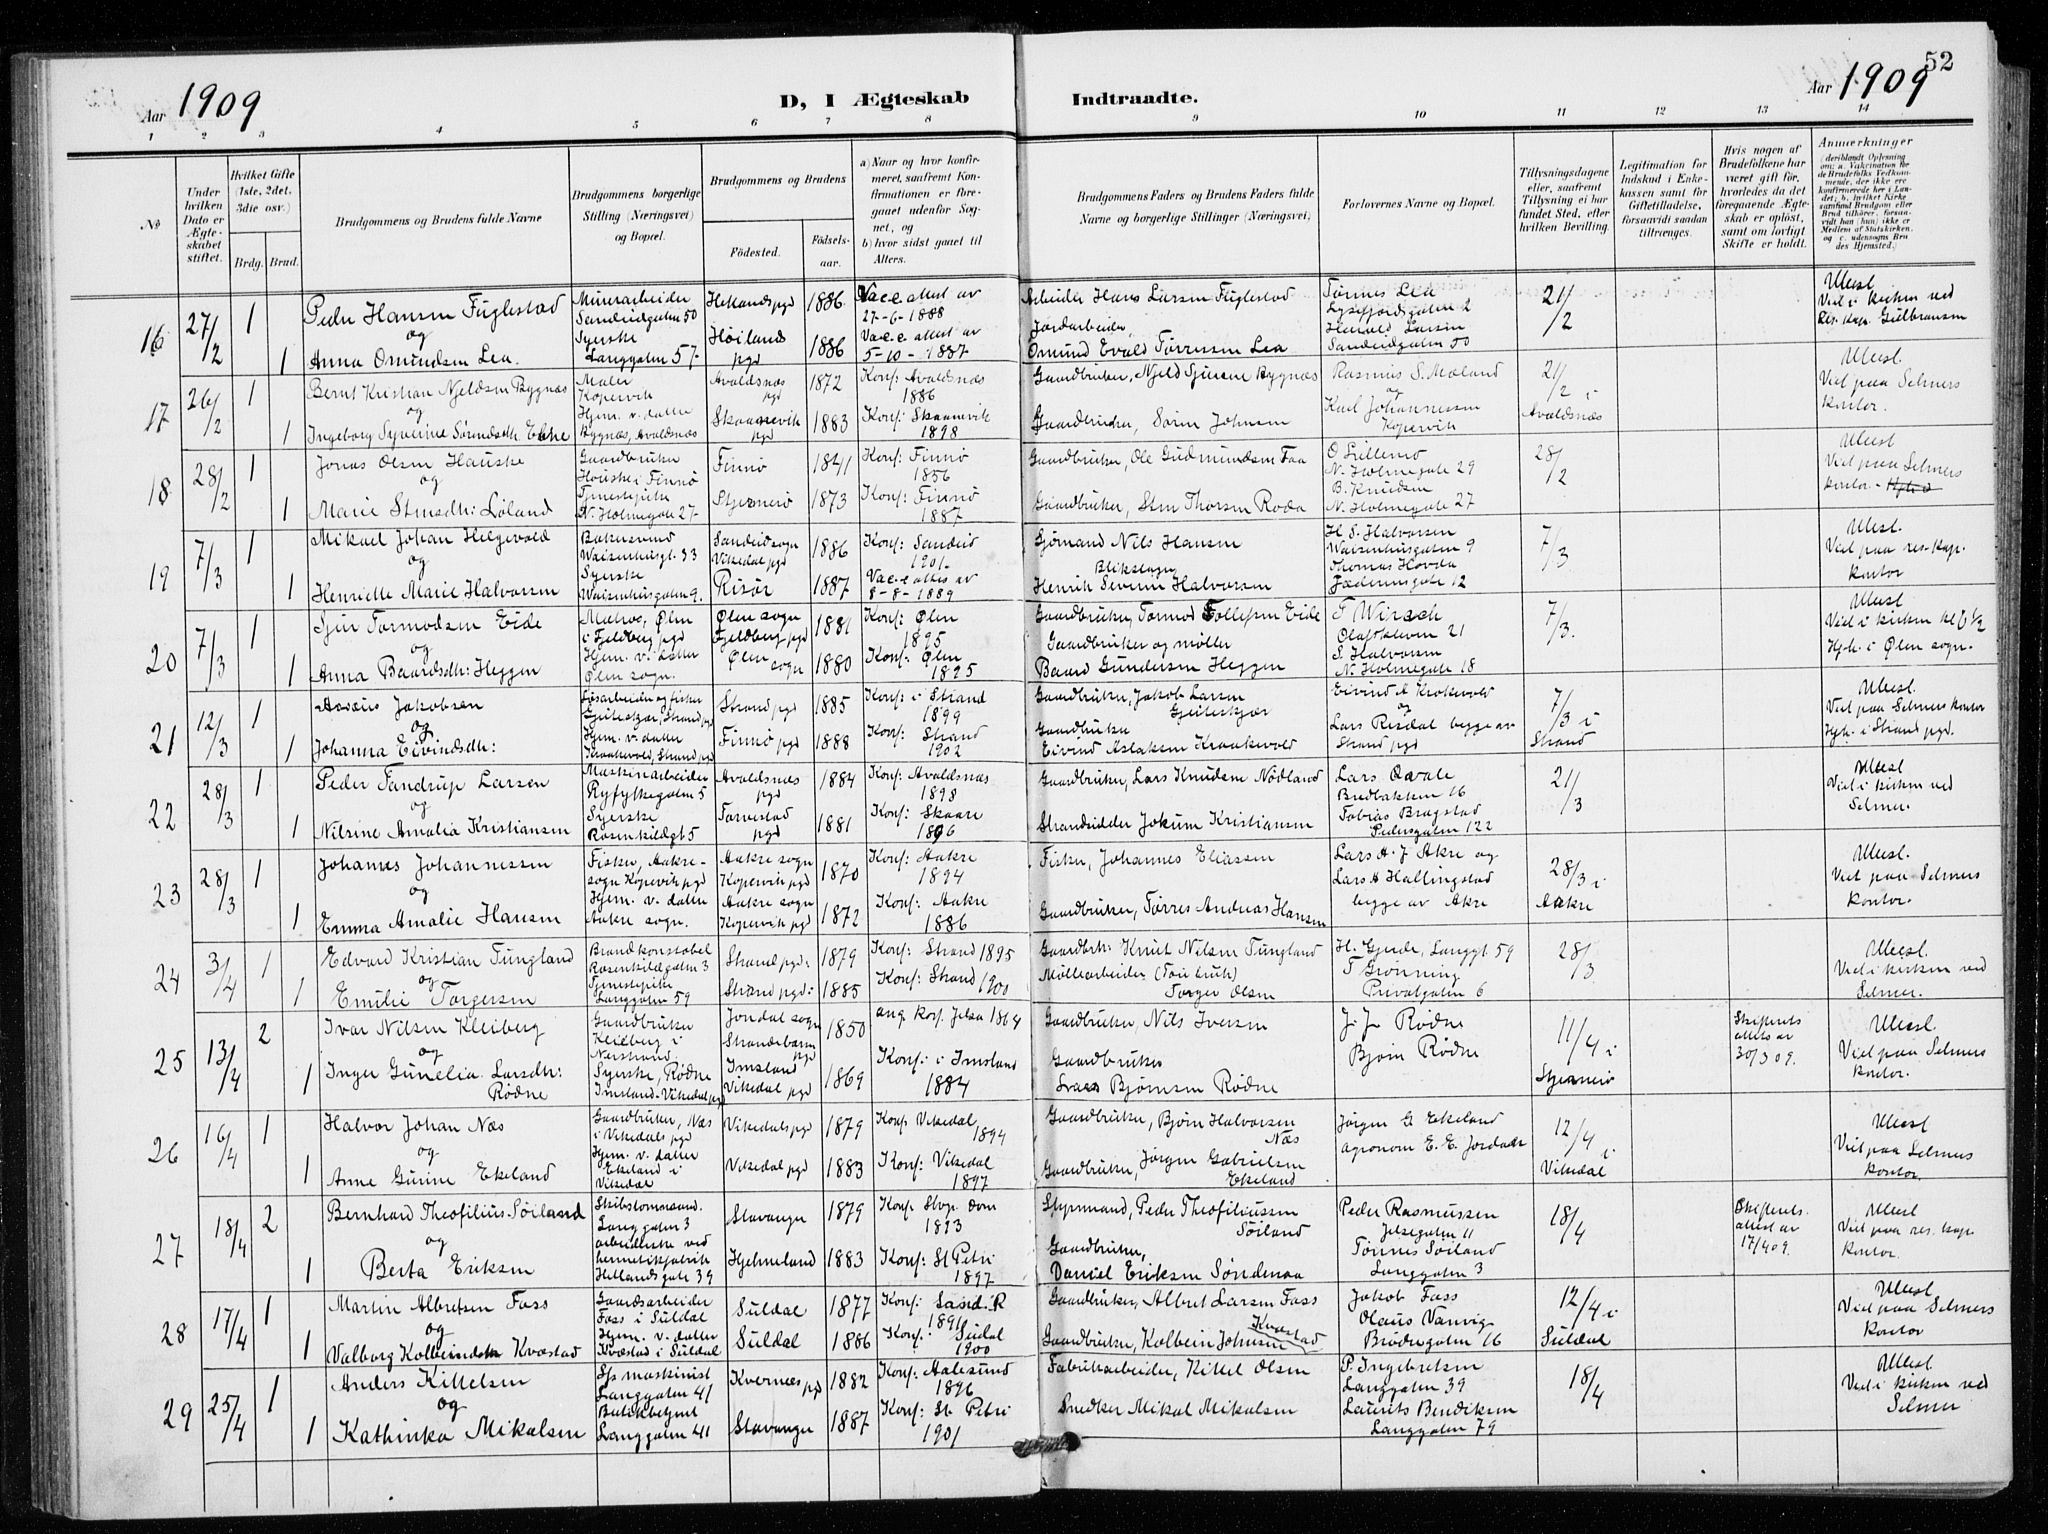 52
Aar 1909
D, I Ægteskab
Indtraadte.
Aar 1909
1 2 3 4 5 6 7 8 9 10 11 12 13 14
No
Under hvilken Dato er Ægteskabet stiftet.
Hvilket Gifte (1ste, 2det, 3die osv.)
Brdg. Brud.
Brudgommens og Brudens fulde Navne
Brudgommens borgerlige Stilling (Næringsvei) og Bopæl.
Brudgommens og Brudens
Födested.
Födselsaar.
a) Naar og hvor konfirmeret, saafremt Konfirmationen er foregaaet udenfor Sognet, og
b) hvor sidst gaaet til Alters.
Brudgommens Faders og Brudens Faders fulde Navne og borgerlige Stillinger (Næringsvei)
Forlovernes Navne og Bopæl.
Tillysningsdagene eller, saafremt Tillysning ei har fundet Sted, efter hvilken Bevilling.
Legitimation for Indskud i Enkekassen samt for Giftetilladelse, forsaavidt saadan tiltrænges.
Hvis nogen af Brudefolkene har været gift før, hvorledes da det foregaaende Ægteskab er opløst, samt om lovligt Skifte er holdt.
Anmærkninger
16 27/2 1 Peder Hansen Fuglestad Murerarbeider Sandeidgaten 50 Hetlands pgd 1886 Vacc attest av 27-6-1888 Arbeider Hans Larsen Fuglestad Tønnes Lea Lysefjordsgaten 2 21/2 Ulæst Viet i kirken ved Res. kap. Gulbransen
og
1 Anna Omundsen Lea. Syerske Langgaten 57 Høiland pgd 1886 Vacc attest av 5-10-1887 Jordarbeider Omund Evald Tørresen Lea Harald Larsen Sandeidgaten 50
17 26/2 1 Bernt Kristian Njeldsen Bygnæs Maler Kopervik Avaldsnæs pgd 1872 Konf. Avaldsnæs 1886 Gaardbruker, Njeld Sjursen Bygnæs Rasmus S. Mæland 21/2 i Avaldsnæs Ulæst. Viet paa Selmers kontor.
og
1 Ingeborg Syverine Sørensdtr. Hjem. v. datter Bygnæs, Avaldsnæs Skaanevik pgd 1883 Konf: Skaanevik 1898 Gaardbruker, Søren Johnsen og Karl Johannessen Kopervik
18 28/2 1 Jonas Olsen Hauske Gaardbruker Hauske i Finnø Finnø 1841 Konf: Finnø 1856 Gaardbruker, Ole Gudmundsen Faa O Lillemo N. Holmegate 29 28/2 Ulæst Viet paa Selmers kontor.
og
1 Marie Stensdtr: Løland Tjenestepike N. Holmegate 27 Stjernerø 1873 Konf: Finnø 1887 Gaardbruker, Sten Thorsen Roda B. Knudsen N. Holmegate 27
19 7/3 1 Mikael Johan Helgevold Bakersvend Waisenhusgt. 33 Sandeid sogn Vikedal pgd 1886 Konf: Sandeid 1901. Sjømand Nils Hansen H S. Halvorsen Waisenhusgaten 9 7/3. Ulæst. Viet paa res. kap. kontor
og
1 Henriette Marie Halvorsen Syerske Waisenhusgaten 9. Risør 1887 Vacc attest av 8-8-1889 Blikslager Henrik Severin Halvorsen Thomas Hovda Jædernesgate 12
20 7/3 1 Sjur Tormodsen Eide Matros, Ølen i Fjeldberg pgd Ølen sogn Fjeldberg pgd 1881 Konf: Ølen 1895 Gaardbruker, Tormod Tollefsen Eide F Wirsch Olafskleven 21 7/3. Ulæst Viet i kirken kl 6 1/2 Hjh. i Ølen sogn.
og
1 Anna Baardsdtr: Heggen Hjem. v. datter Ølen sogn. Ølen sogn 1880 Konf: Ølen 1895 Gaardbruker og møller Baard Gundersen Heggen S. Halvorsen N. Holmegate 18
21 12/3 1 Jakobsen Løsarbeider og fisker Geiteskjær, Strand pgd Strand pgd 1885 Konf: i Strand 1899 Gaardbruker, Jakob Larsen Geiteskjær Eivind A Krokevold 7/3 i Strand Ulæst. Viet paa Selmers kontor Hjh. i Strand pgd.
og
1 Johanna Eivindsdtr: Hjem. v. datter Kraakevold, Strand pgd Finnø pgd 1888 Konf: Strand 1902 Gaardbruker Eivind Aslaksen Kraakevold og Lars Risdal begge av Strand pgd
22 28/3 1 Peder Tandrup Larsen Maskinarbeider Ryfylkegaten 5 Avaldsnæs pgd 1884 Konf: Avaldsnæs 1898 Gaardbruker, Lars Knudsen Nødland Lars Qvale Bredbakken 16 21/3 Ulæst Viet i kirken ved Selmer.
og
1 Nilsine Amalia Kristiansen Syerske Rosenkildegt 5 Torvestad pgd 1881 Konf: Skaare 1896 Strandsidder Jokum Kristiansen Tobias Bragstad Pedersgaten 122
23 28/3 1 Johannes Johannessen Fisker, Aakre sogn Kopervik pgd Aakre sogn Kopervik pgd 1870 Konf: Aakre 1894 Fisker, Johannes Eliassen Lars A. J Akre og 28/3 i Aakre Ulæst. Viet paa Selmers kontor.
og
1 Emma Amalie Hansen Hjem. v. datter Aakre sogn. Aakre sogn Kopervik pgd 1872 Konf: Aakre 1886 Gaardbruker, Tørres Andreas Hansen Lars H Hallingstad begge av Akre
24 3/4 1 Edvard Kristian Tungland Brandkonstabel Rosenkildegaten 3 Strand pgd: 1879 Konf: Strand 1895 Gaardbrk: Knut Nilsen Tungland H. Gjerde, Langgt. 59 28/3 Ulæst. Viet i kirken ved Selmer.
og
1 Emilie Torgersen Tjenestepike Langgaten 59 Strand pgd: 1885 Konf: Strand 1900 Møllearbeider (Tou bruk) Torger Olsen T Grønning Privatgaten 6
25 13/4 2 Ivar Nilsen Kleiberg Gaardbruker Kleiberg i Nerstrand Jondal sogn Strandebarm pgd 1850 ang. konf. Jelsa 1864 Gaardbruker, Nils Iversen J. J. Rødne 11/4 i Stjernerø Skifterets attest av 30/3 09. Ulæst. Viet paa Selmers kontor.
og
1 Inger Gunelia Larsdtr: Rødne Syerske, Rødne Imsland, Vikedal pgd Imsland Vikedal pgd 1869 Konf: i Imsland 1884 Gaardbruker Lars Bjørnsen Rødne Bjørn Rødne
26 16/4 1 Halvor Johan Næs Gaardbruker, Næs i Vikedals pgd Vikedals pgd 1879 Konf. Vikedal 1894 Gaardbruker, Bjørn Halvorsen Næs Jørgen G Ekeland 12/4 i Vikedal Ulæst Viet paa Selmers kontor.
og
1 Anne Gurine Ekeland Hjem. v. datter Ekeland i Vikedal Vikedal pgd 1883 Konf: Vikedal 1897 Gaardbruker, Jørgen Gabrielsen Ekeland agronom E. E. Jordade
27 18/4 2 Bernhard Theofilius Søiland Skibstømmermand. Langgaten 3 Stavanger 1879 Konf Stvgr. dom 1893 Styrmand, Peder Theofiliussen Søiland Peder Rasmussen Jelsegaten 11 18/4 Skifterets attest av 17/4 09. Ulæst Viet paa res. kap. kontor.
og
1 Berta Eriksen arbeiderske ved hermetikfabrik Hetlandsgate 39 Hjelmeland 1883 Konf: St Petri 1897 Gaardbruker, Daniel Eriksen Søndenaa Tønnes Søiland Langgaten 3
28 17/4 1 Martin Albretsen Foss Gaardsarbeider Foss i Suldal Suldal 1877 Konf: Sand. R 1891 Gaardbruker, Albret Larsen Foss Jakob Foss 12/4 i Suldal Ulæst. Viet paa Selmers kontor
og
1 Valborg Kolbeinsdtr Kvæstad Hjem. v. datter Kvæstad i Suldal Suldal 1886 Konf: Suldal 1900 Gaardbruker, Kolbein Johnsen Kvæstad Olaus Vanvig Brødregaten 16
29 25/4 1 Anders Kittelsen Ss maskinist Langgaten 41 Kvernes pgd 1882 Konf: Aalesund 1896 Fabrikarbeider, Kittel Olsen P. Ingebretsen Langgaten 39 18/4 Ulæst. Viet i kirken ved Selmer
og
1 Kathinka Mikalsen Butikbetjent Langgaten 41 Stavanger 1887 Konf: St Petri 1901 Snedker Mikal Mikalsen Laurits Bendiksen Langgaten 79